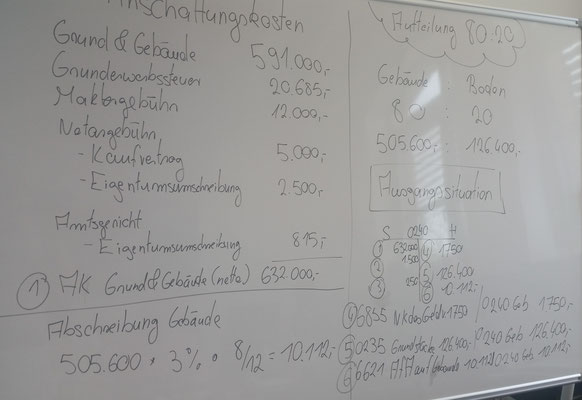 Anschaffungskosten
Grund & Gebäude 591.000,-
Grunderwerbssteuer 20.685,-
Maklergebühn 12.000,-
Notargebühn
- Kaufvertrag 5.000,-
- Eigentumsumschreibung 2.500,-
Amtsgericht
- Eigentumsumschreibung 815,-
1) AK Grund & Gebäude (netto) 632.000,-
Abschreibung Gebäude
505.600 * 3% * 8/12 = 10.112,-
Aufteilung 80:20
Gebäude : Boden
80 : 20
505.600,- : 126.400,-
Ausgangssituation
S 0240 H
1 632000 4 1750
2 1.500 5 126.400
3 250 6 10.112,-
4 6855 NK des Geldv 1750 / 0240 Geb 1.750,-
5 0235 Grundstücke 126.400,- / 0240 Geb 126.400,-
6 6621 AfA auf Gebäude 10.112 / 0240 Geb 10.112,-